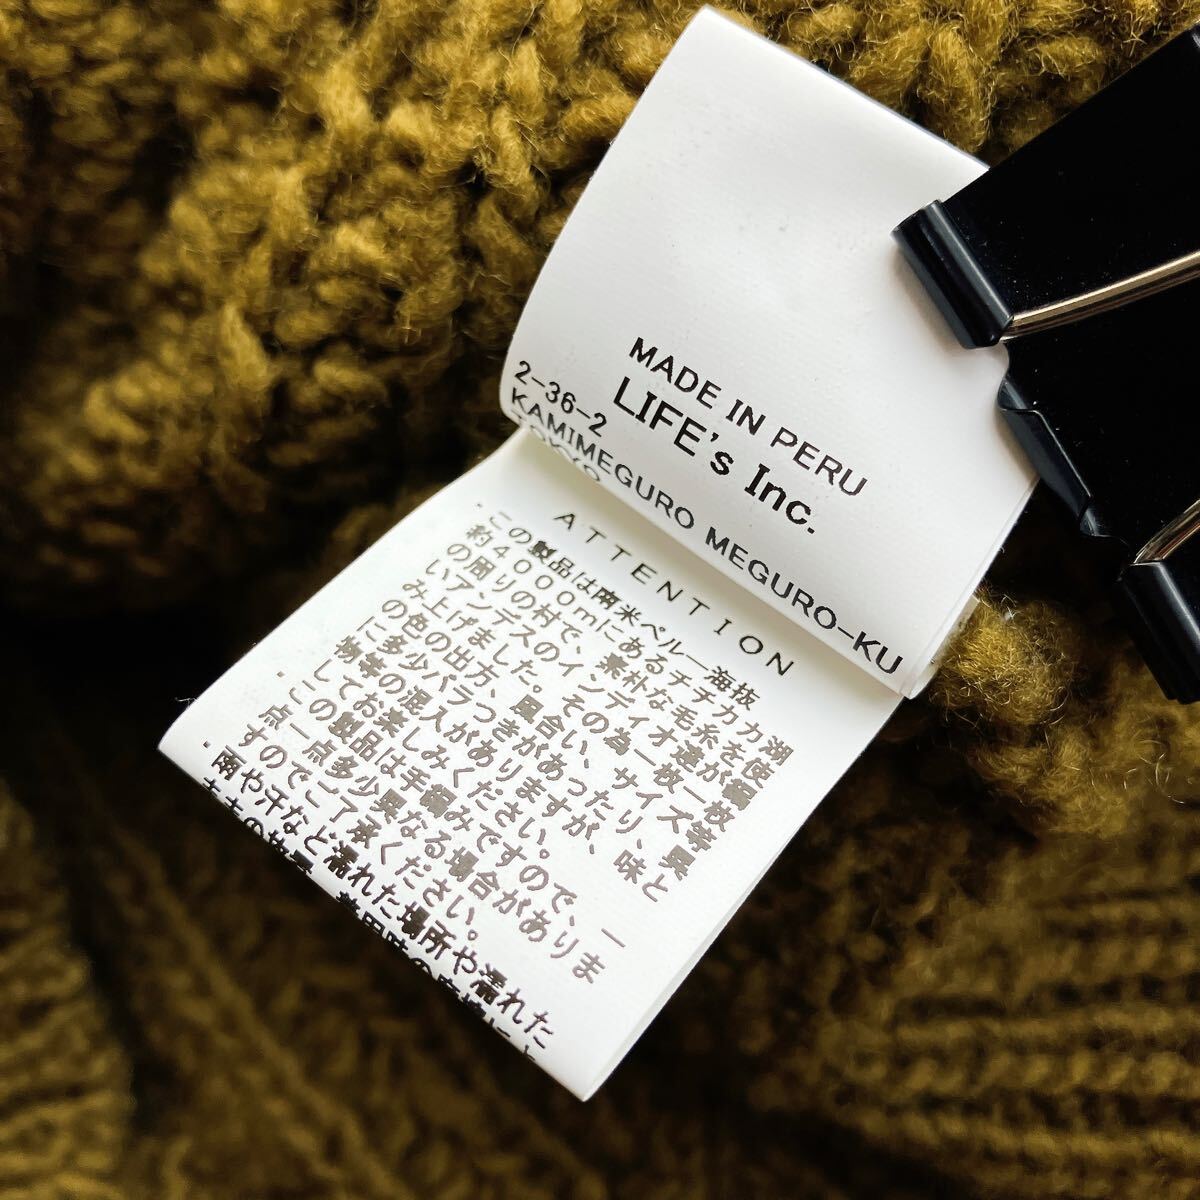 MADE IN PERU
LIFE's Inc.
2-36-2
KAMIMEGURO MEGURO-KU
TOKYO
ATTENTION
・この製品は南米ペルー海抜
約4000mにあるチチカカ湖
の周りの村で、素朴な毛糸を使
いアンデスのインディオ達が編
み上げました。その為一枚一枚
の色の出方、風合い、サイズ等異
に多少バラつきがあったり、
物等の混入がありますが、味と
してお楽しみください。
・この製品は手編みですので、一
点一点多少異なる場合がありま
すのでご了承ください。
・雨や汗など濡れた場所や濡れた